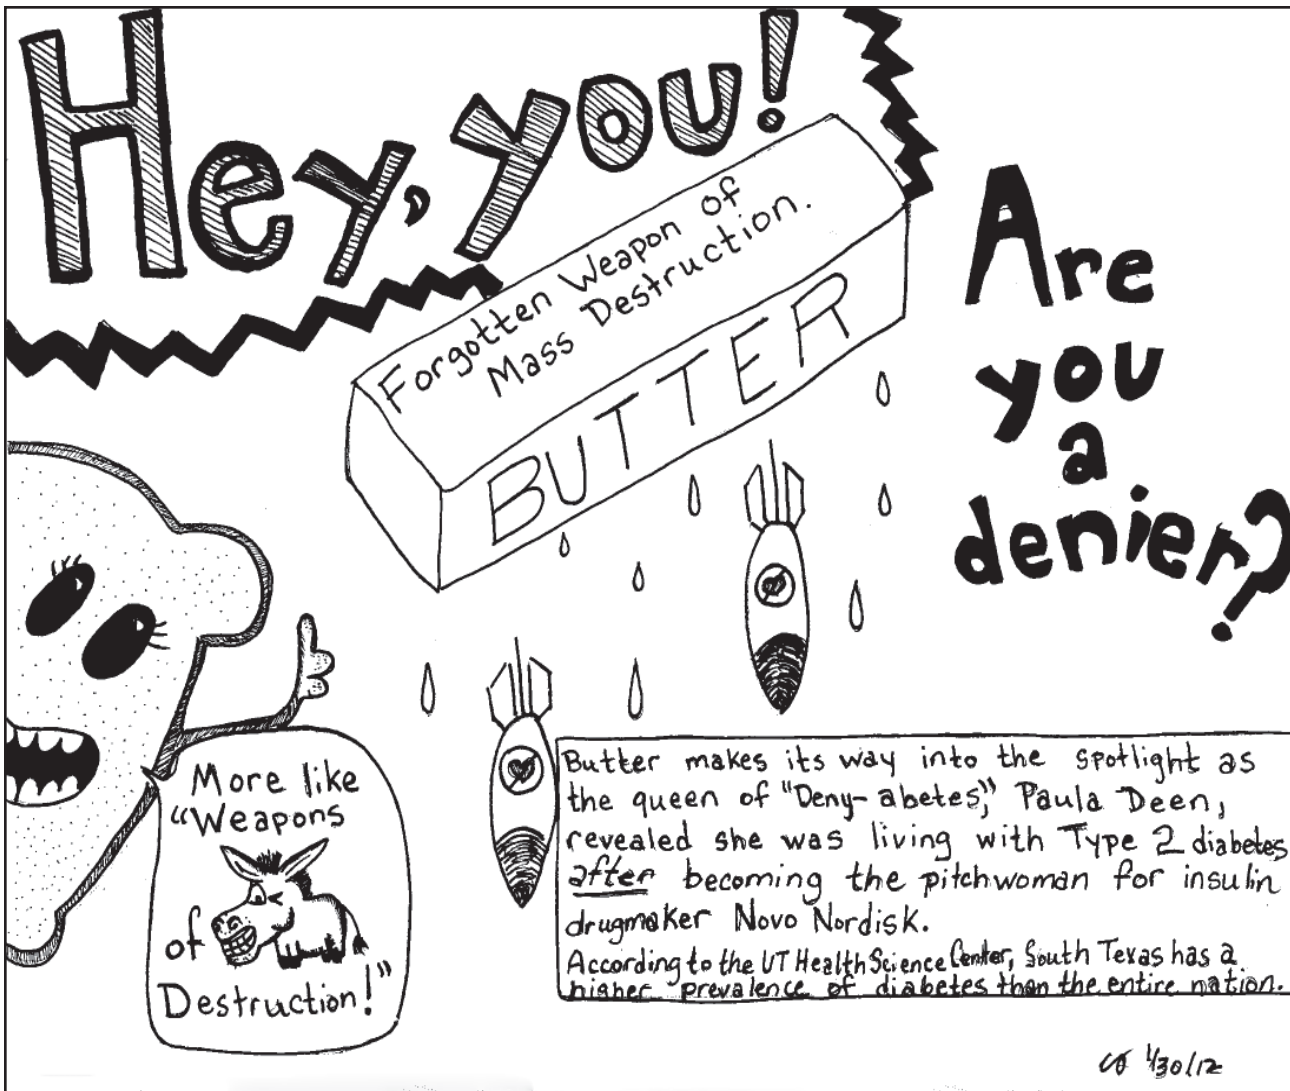 Hey, you!
Forgotten Weapon of
Mass Destruction.
BUTTER
Are
you
a
denier?
More like
"Weapons
of
Destruction!"
Butter makes its way into the spotlight as
the queen of "Deny-abetes," Paula Deen,
revealed she was living with Type 2 diabetes
after becoming the pitchwoman for insulin
drugmaker Novo Nordisk.
According to the UT Health Science Center, South Texas has a
higher prevalence of diabetes than the entire nation.
1/30/12